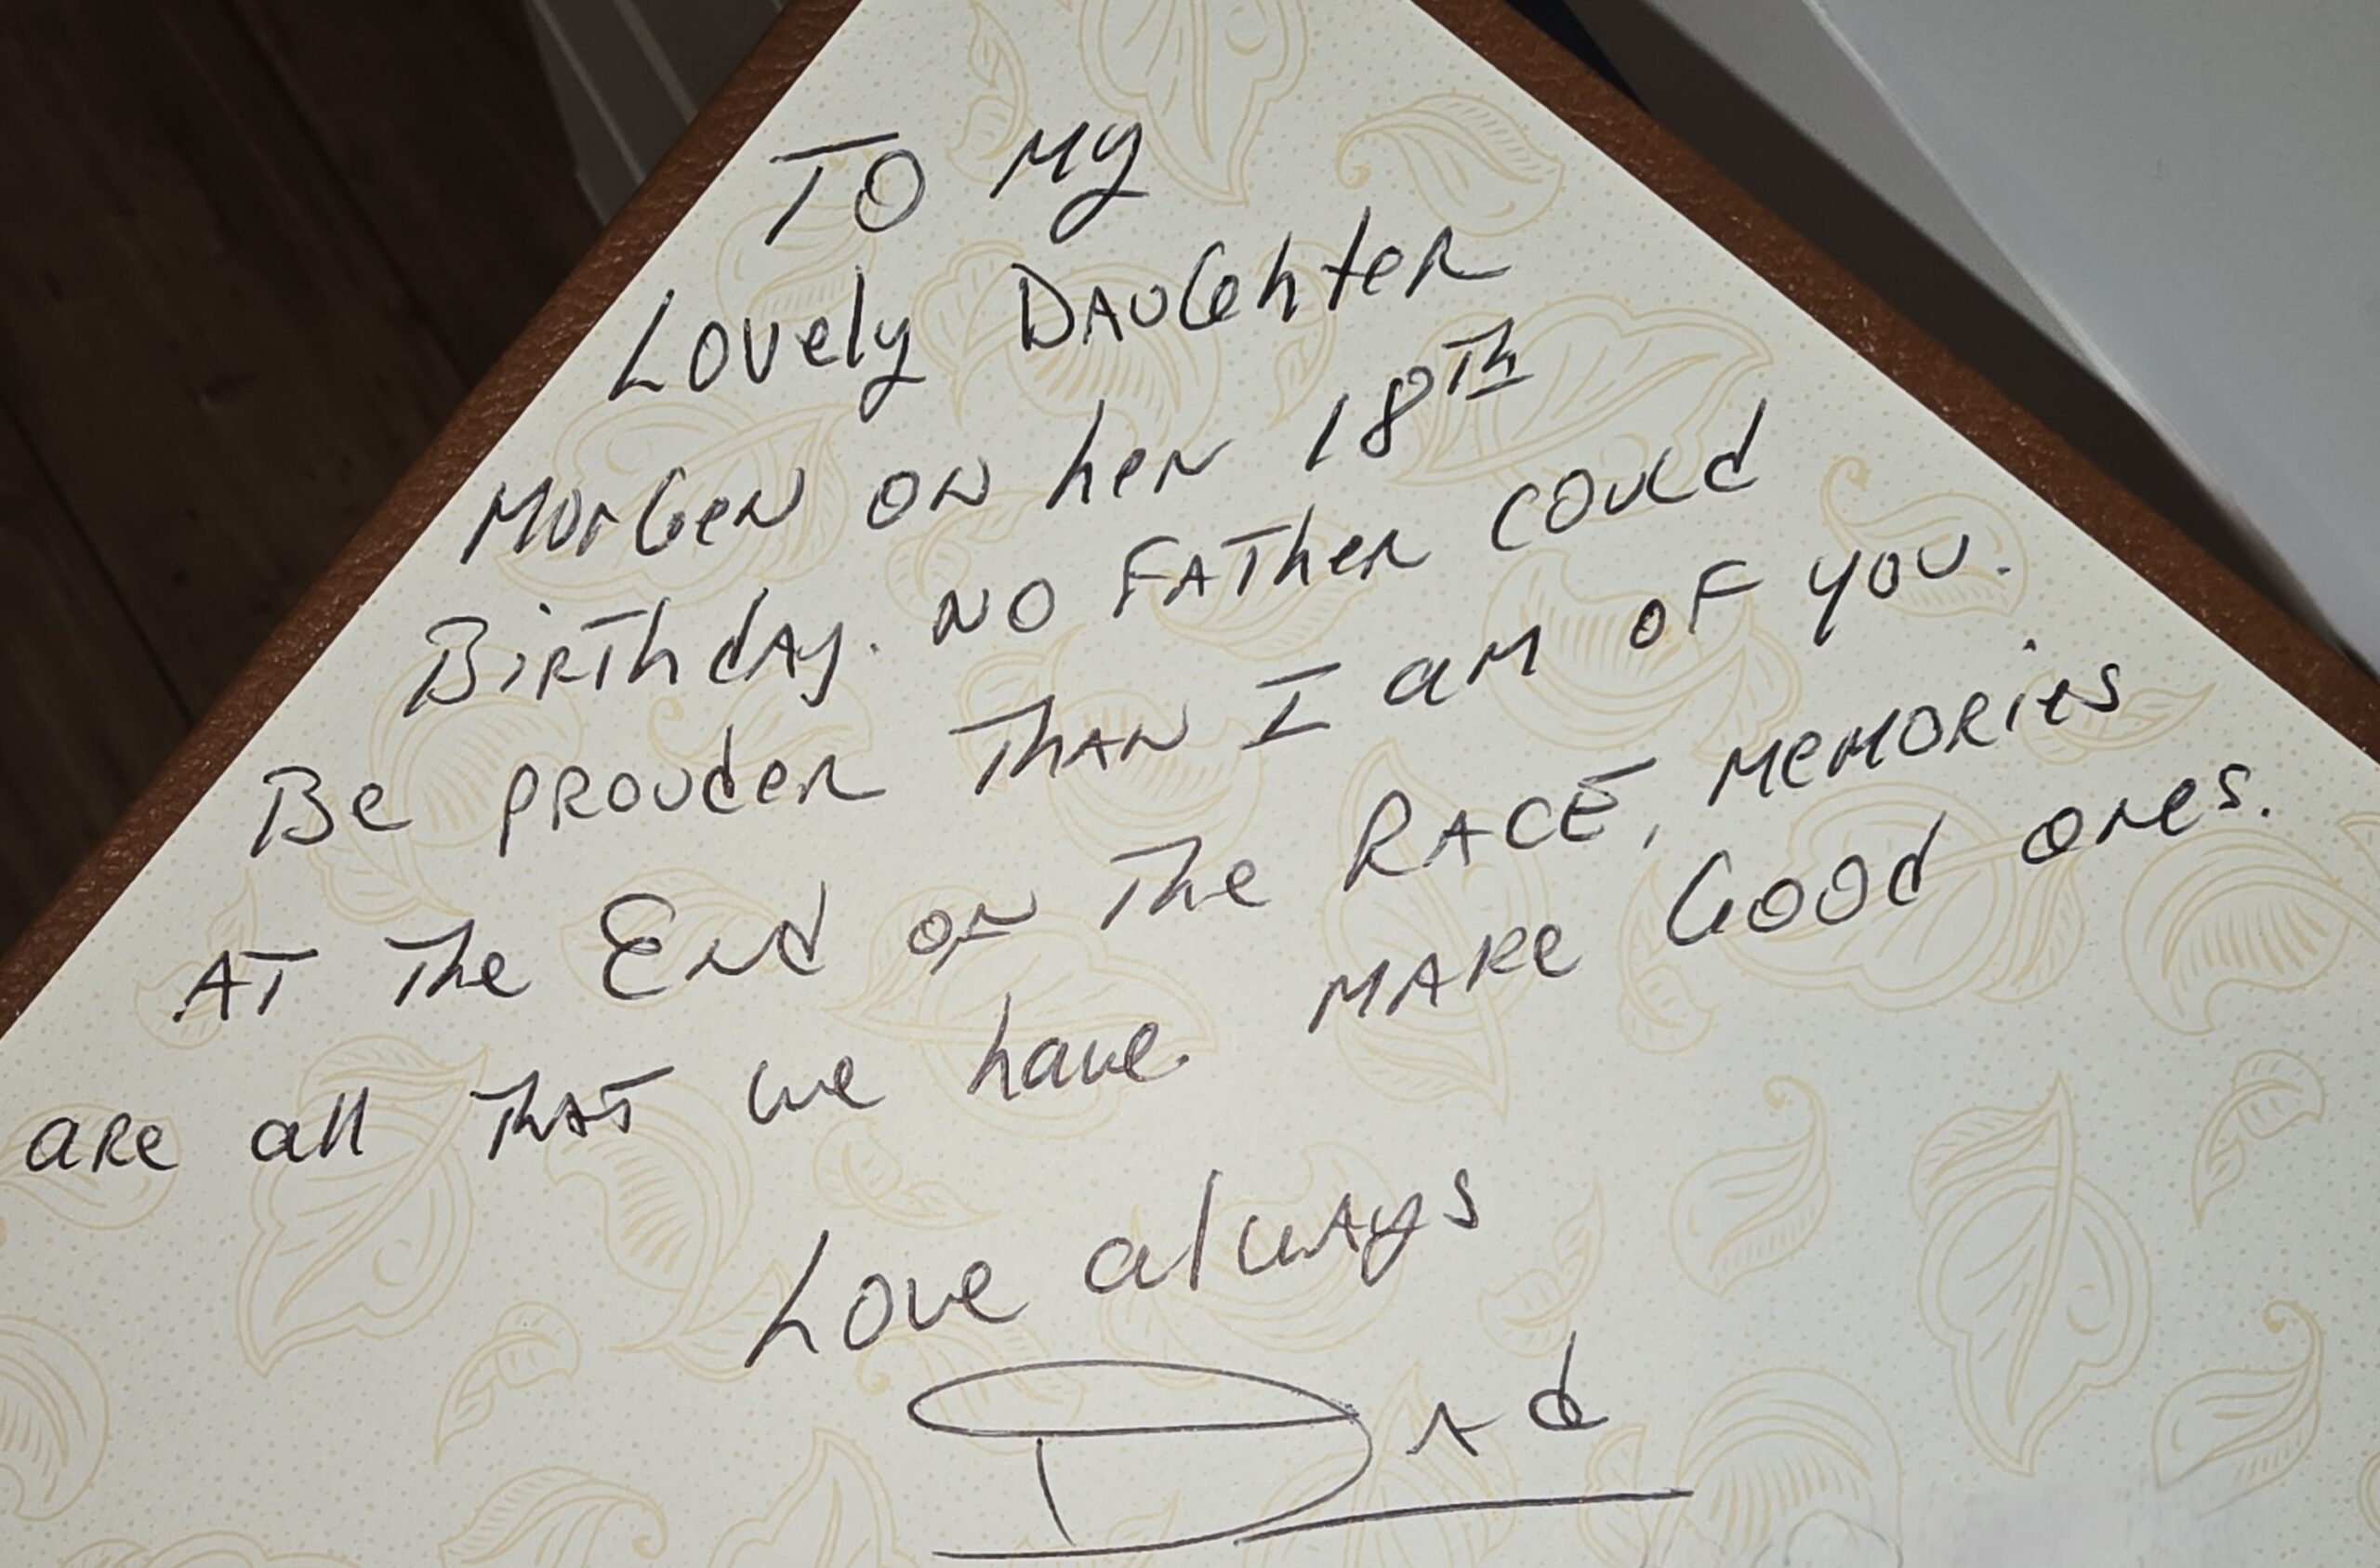 TO My
Lovely DAUGhter
MorGen ON her 18Th
BirThdAy. NO FATher COULd
Be prouder ThAN I am OF you.
AT The End on The RACE, MeMORies
are all ThAT we have. MAKe GOOd ones.
Love always
Dad